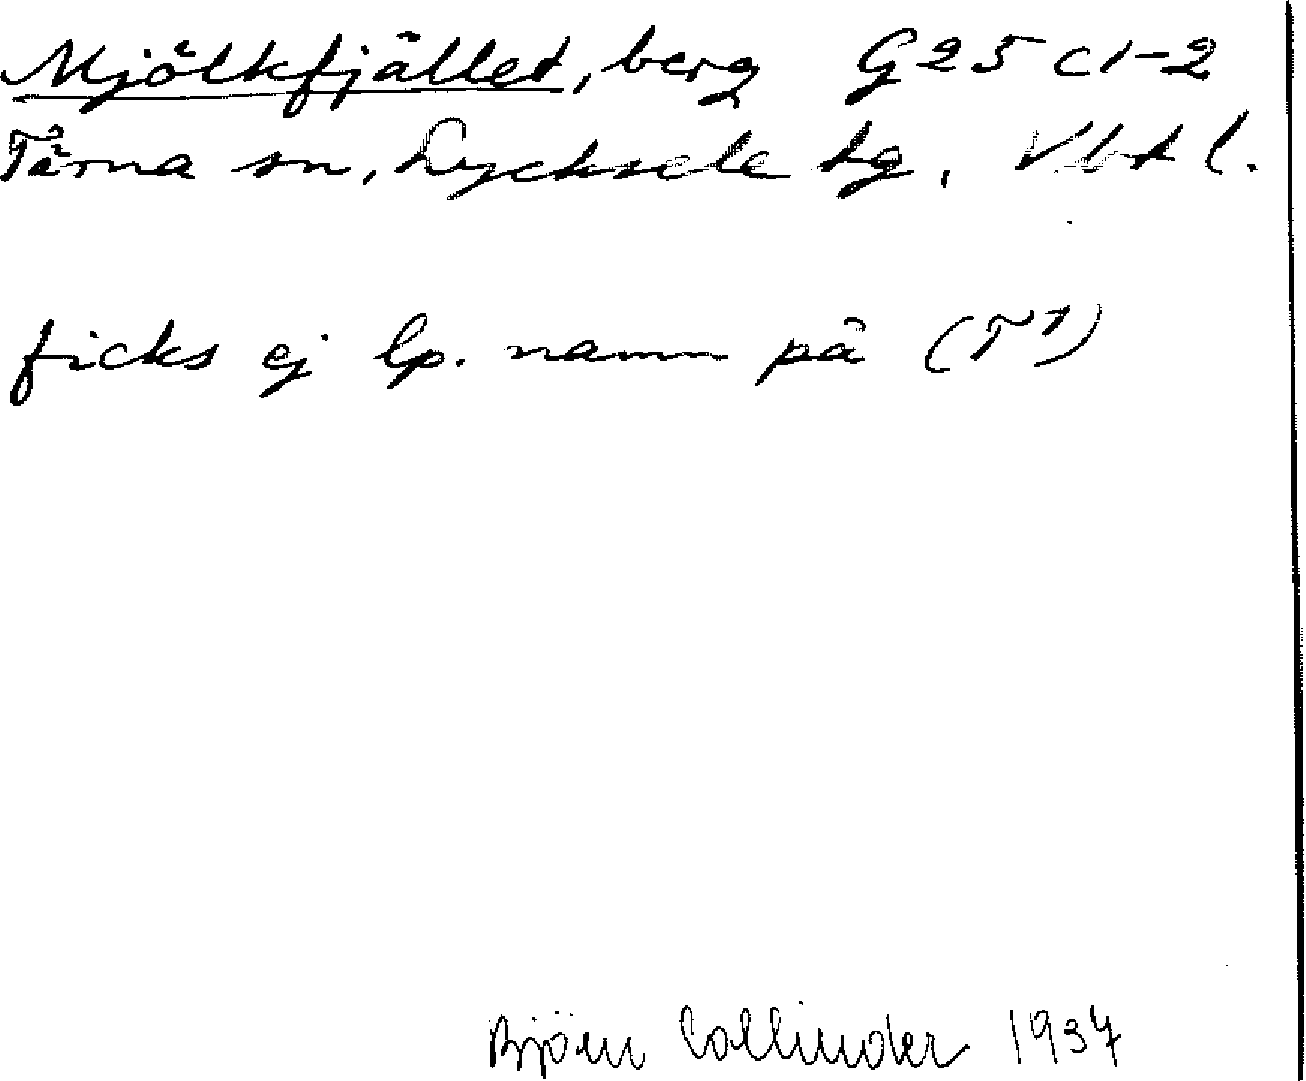 Mjölkfjället, berg G25 c1-2
Tärna sn, Lycksele lg, Vbtl.
ficks ej lp. namn på (T1)
Björn Collinder 1937